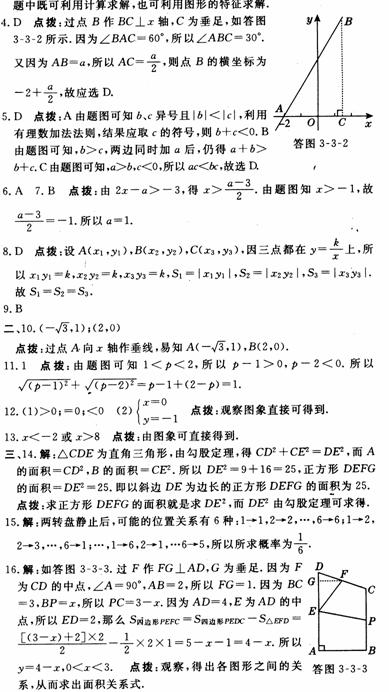 题中既可利用计算求解,也可利用图形的特征求解.
4. D 点拨:过点 B 作 BC⊥x 轴,C 为垂足,如答图
3-3-2 所示.因为∠BAC=60°,所以∠ABC=30°.
又因为 AB=a,所以 AC=a/2,则点 B 的横坐标为
-2+a/2,故应选 D.
y
B
A
-2
O
C
x
答图 3-3-2
5. D 点拨:A 由题图可知 b、c 异号且|b|<|c|,利用
有理数加法法则,结果应取 c 的符号,则 b+c<0. B
由题图可知,b>c,两边同时加 a 后,仍得 a+b>
b+c. C 由题图可知,a>b,c<0,所以 ac<bc,故选 D.
6. A 7. B 点拨:由 2x-a>-3,得 x>(a-3)/2.由题图知 x>-1,故
(a-3)/2=-1.所以 a=1.
8. D 点拨:设 A(x₁,y₁),B(x₂,y₂),C(x₃,y₃),因三点都在 y=k/x 上,所
以 x₁y₁=k,x₂y₂=k,x₃y₃=k,S₁=|x₁y₁|,S₂=|x₂y₂|,S₃=|x₃y₃|.
故 S₁=S₂=S₃.
9. B
二、10. (-√3,1);(2,0)
点拨:过点 A 向 x 轴作垂线,易知 A(-√3,1),B(2,0).
11. 1 点拨:由题图可知 1<p<2,所以 p-1>0,p-2<0.所以
√(p-1)²+√(p-2)²=p-1+(2-p)=1.
12. (1)>0;=0;<0 (2){x=0 y=-1 点拨:观察图象直接可得到.
13. x<-2 或 x>8 点拨:由图象可直接得到.
三、14.解:△CDE 为直角三角形,由勾股定理,得 CD²+CE²=DE²,而 A
的面积=CD²,B 的面积=CE².所以 DE²=9+16=25,正方形 DEFG
的面积=DE²=25.即以斜边 DE 为边长的正方形 DEFG 的面积为 25.
点拨:求正方形 DEFG 的面积就是求 DE²,而 DE² 由勾股定理可求得.
15.解:两转盘静止后,可能的位置关系有 6 种:1→1,2→2,…,6→6;1→2,
2→3,…,6→1;…,1→6,2→1,…6→5,所以所求概率为1/6.
16.解:如答图 3-3-3.过 F 作 FG⊥AD,G 为垂足.因为 F
为 CD 的中点,∠A=90°,AB=2,所以 FG=1.因为 BC
=3,BP=x,所以 PC=3-x.因为 AD=4,E 为 AD 的中
点,所以 ED=2,那么 S四边形PEFC=S四边形PEDC-S△EFD=
[(3-x)+2]×2/2-1/2×2×1=5-x-1=4-x.所以
y=4-x,0<x<3. 点拨:观察,得出各图形之间的关
系,从而求出面积关系式.
D
G
F
C
E
P
A
B
答图 3-3-3